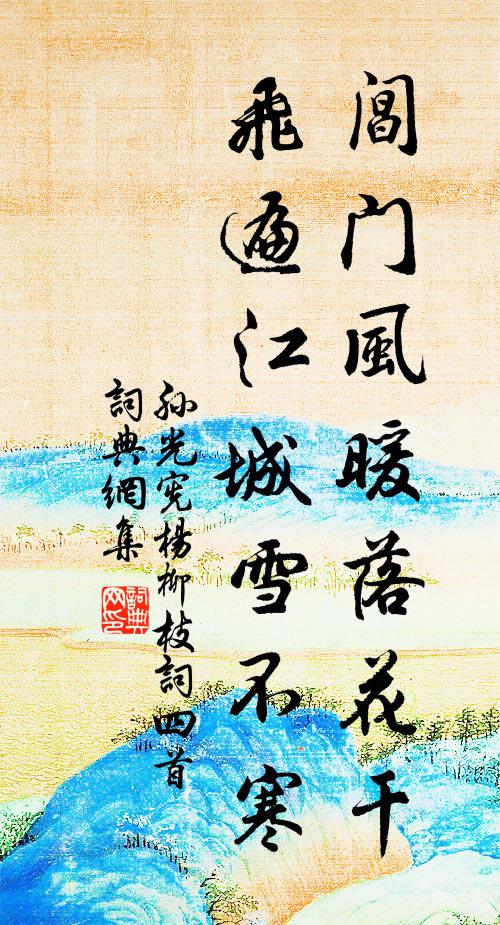 閶门風暖落花干
飛遍江城雪不寒
孙光宪楊柳枝詞四首
詞典網集
詞典网印